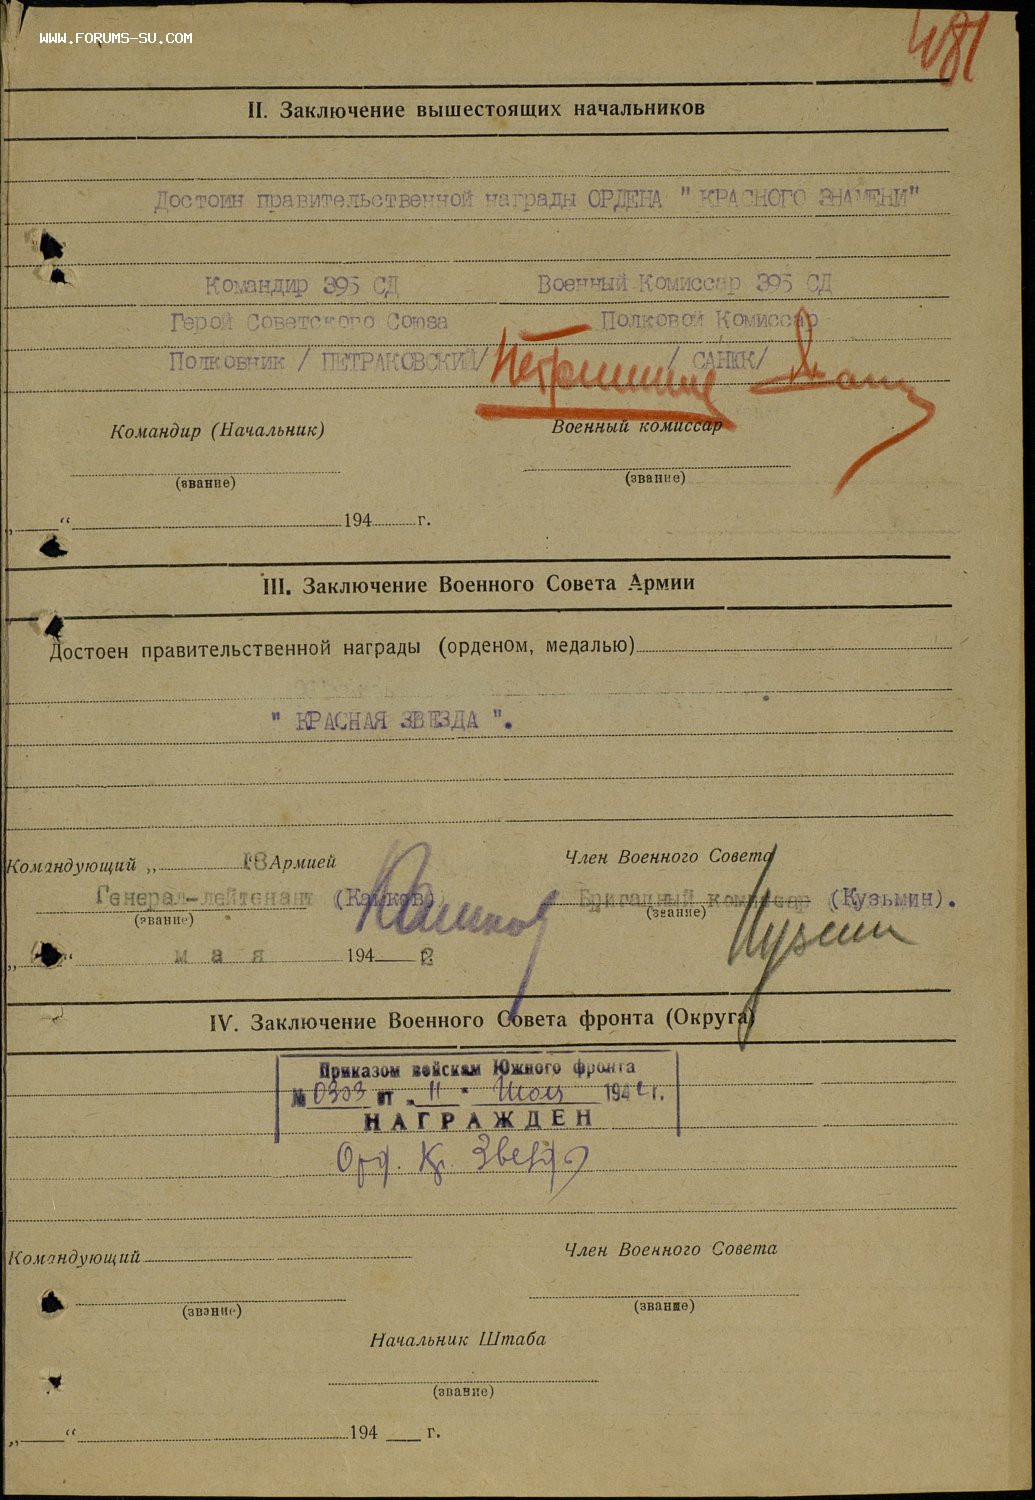 WWW.FORUMS-SU.COM
481
II. Заключение вышестоящих начальников
Достоин правительственной награды ОРДЕНА " КРАСНОГО ЗНАМЕНИ"
Командир 395 СД Военный Комиссар 395 СД
Герой Советского Союза Полковой Комиссар
Полковник / ПЕТРАКОВСКИЙ/ / САНИК/
Командир (Начальник) Военный комиссар
(звание) (звание)
„ “ 194 г.
III. Заключение Военного Совета Армии
Достоен правительственной награды (орденом, медалью)
" КРАСНАЯ ЗВЕЗДА ".
Командующий „ 18 “ Армией Член Военного Совета
Генерал-лейтенант (Камков) Бригадный комиссар (Кузьмин).
(звание) (звание)
Камков Кузьмин
„ “ м а я 194 2 г.
IV. Заключение Военного Совета фронта (Округа)
Приказом войскам Южного фронта
№ 0303 от „ 11 " Июля 1942 г.
НАГРАЖДЕН
Орд. Кр. Звезда
Командующий Член Военного Совета
(звание) (звание)
Начальник Штаба
(звание)
„ “ 194 г.